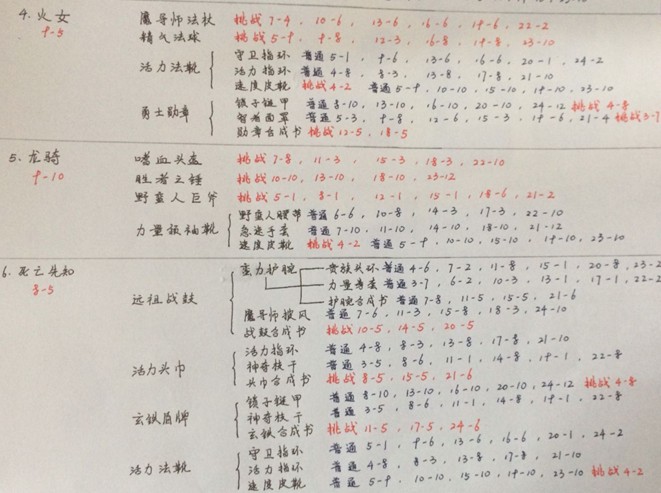 4. 火女 魔导师法杖 挑战 7-4, 10-6, 13-6, 16-6, 19-6, 22-2
9-5 精气法球 挑战 5-9, 9-8, 12-3, 16-8, 19-8, 23-10
活力法靴 守卫指环 普通 5-1, 9-6, 13-6, 16-6, 20-1, 24-2
活力指环 普通 4-8, 8-3, 13-8, 17-8, 21-10
速度皮靴 挑战 4-2 普通 5-9, 10-10, 15-10, 19-10, 23-10
勇士勋章 锁子链甲 普通 8-10, 13-10, 16-10, 20-10, 24-12 挑战 4-8
智者面罩 普通 5-3, 9-8, 12-6, 15-3, 19-6, 21-4 挑战 3-7
勋章合成书 挑战 12-5, 18-5
5. 龙骑 嗜血头盔 挑战 7-8, 11-3, 15-3, 18-3, 22-10
9-10 胜者之锤 挑战 10-10, 13-10, 18-10, 23-12
野蛮人巨斧 挑战 5-1, 8-1, 12-1, 15-1, 18-6, 21-2
力量振袖靴 野蛮人腰带 普通 6-6, 10-8, 14-3, 17-3, 22-10
急速手套 普通 7-10, 11-10, 14-10, 18-10, 21-12
速度皮靴 挑战 4-2 普通 5-9, 10-10, 15-10, 19-10, 23-10
6. 死亡先知 远祖战鼓 蛮力护腕 贵族头环 普通 4-6, 7-2, 11-8, 15-1, 20-8, 23-2
8-5 力量手套 普通 3-7, 6-2, 10-3, 13-1, 17-1, 22-2
护腕合成书 普通 7-8, 11-5, 15-5, 21-6
魔导师披风 普通 7-6, 11-3, 15-8, 18-3, 24-10
战鼓合成书 挑战 10-5, 14-5, 20-5
活力头巾 活力指环 普通 4-8, 8-3, 13-8, 17-8, 21-10
神奇枝干 普通 3-5, 8-6, 11-1, 14-8, 19-1, 22-8
头巾合成书 挑战 8-5, 15-5, 21-6
玄铁盾牌 锁子链甲 普通 8-10, 13-10, 16-10, 20-10, 24-12 挑战 4-8
神奇枝干 普通 3-5, 8-6, 11-1, 14-8, 19-1, 22-8
玄铁合成书 挑战 11-5, 17-5, 24-6
活力法靴 守卫指环 普通 5-1, 9-6, 13-6, 16-6, 20-1, 24-2
活力指环 普通 4-8, 8-3, 13-8, 17-8, 21-10
速度皮靴 普通 5-9, 10-10, 15-10, 19-10, 23-10 挑战 4-2